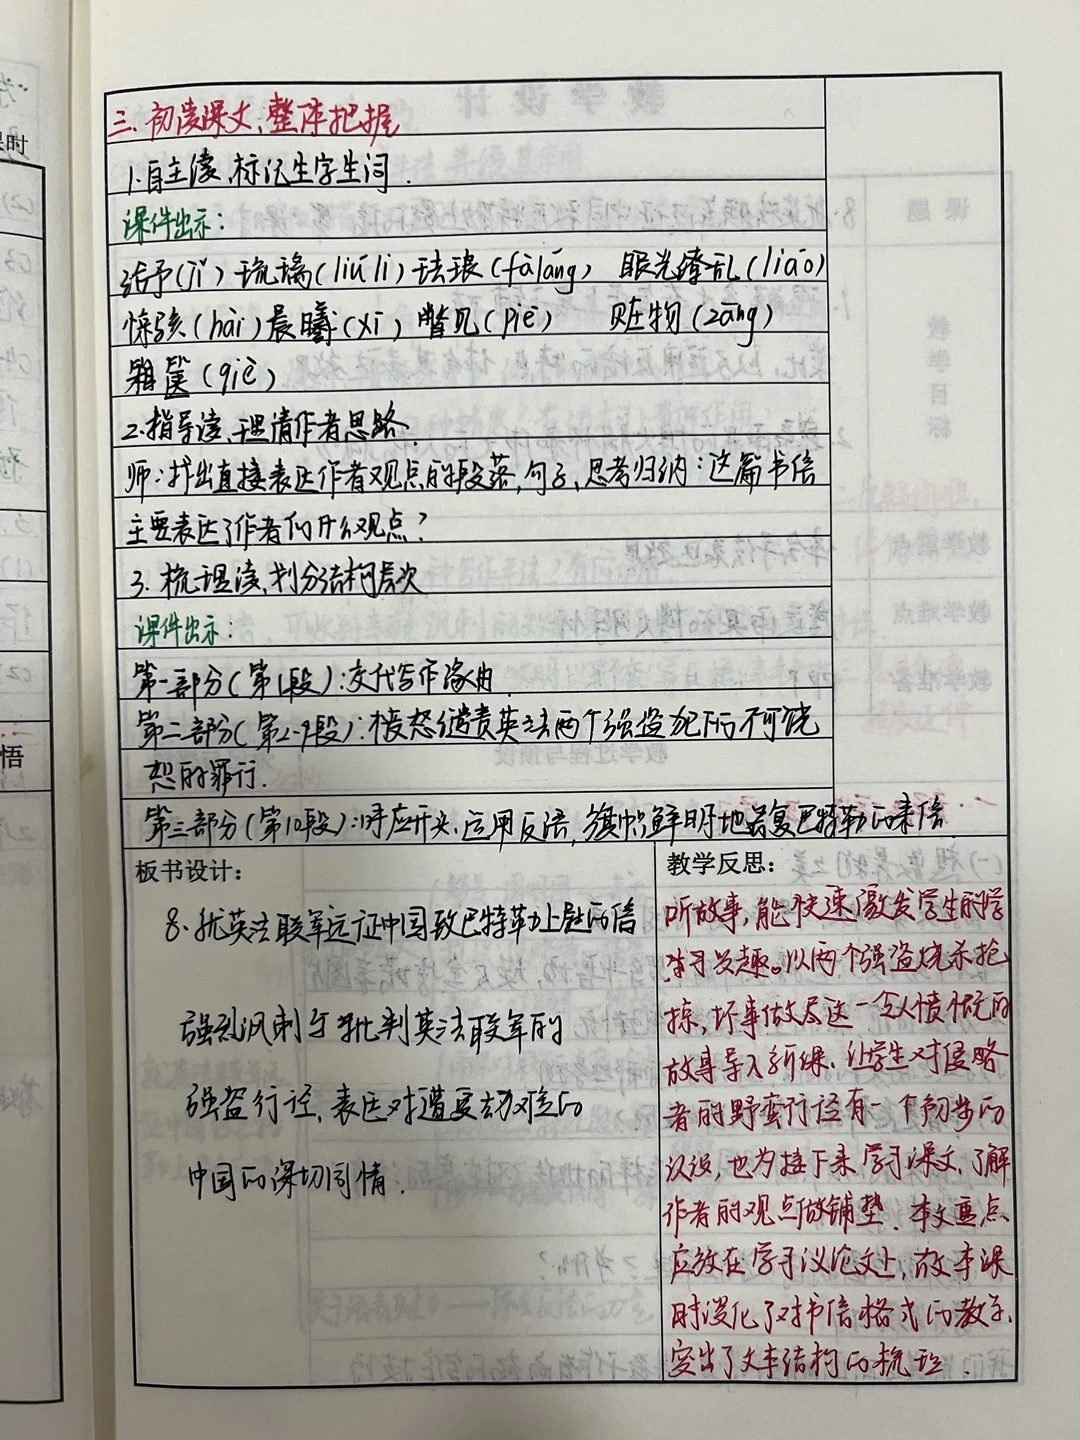 三、初读课文，整体把握
1.自主读，标记生字生词.
课件出示：
给予(jǐ) 琉璃(liú li) 珐琅(fà láng) 眼光缭乱(liáo)
惊骇(hài) 晨曦(xī) 瞥见(piē) 赃物(zāng)
箱箧(qiè)
2.指导读，理清作者思路.
师：找出直接表达作者观点的段落，句子，思考归纳：这篇书信
主要表达了作者的什么观点？
3. 梳理读，划分结构层次
课件出示：
第一部分(第1段)：交代写作缘由.
第二部分(第2-9段)：愤怒谴责英法两个强盗犯下的不可饶
恕的罪行.
第三部分(第10段)：呼应开头，运用反语，旗帜鲜明地答复巴特勒的来信.
板书设计：
8.就英法联军远征中国致巴特勒上尉的信
强烈讽刺与批判英法联军的
强盗行径，表达对遭受劫难的
中国的深切同情.
教学反思：
听故事，能快速激发学生的学
习兴趣。以两个强盗烧杀抢
掠，坏事做尽这一令人愤慨的
故事导入新课，让学生对侵略
者的野蛮行径有一个初步的
认识，也为接下来学习课文，了解
作者的观点做铺垫. 本文重点
应放在学习议论文上，故本课
时淡化了对书信格式的教学，
突出了文本结构的梳理.
课时
悟